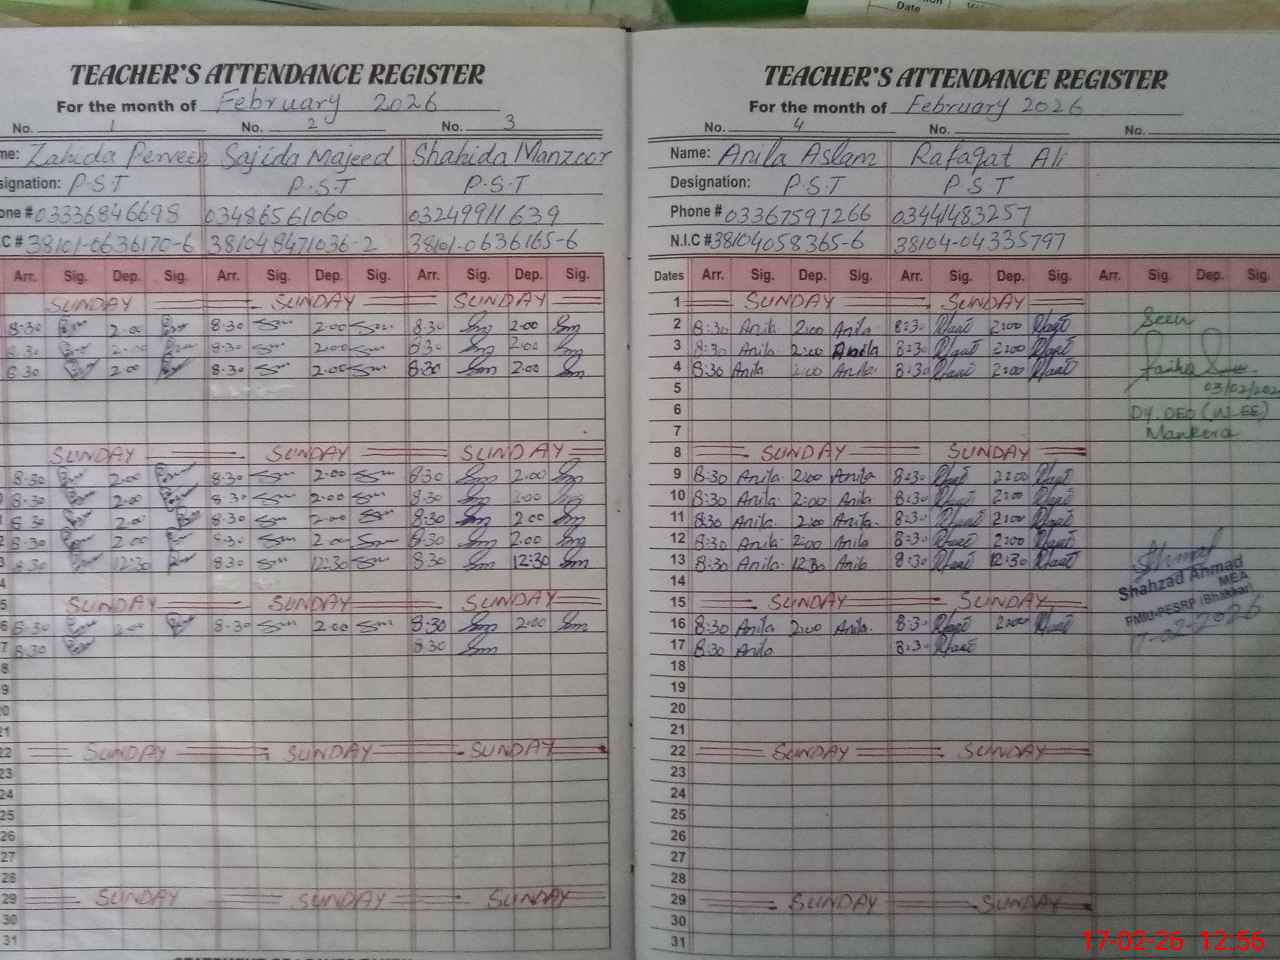 Date
TEACHER'S ATTENDANCE REGISTER
For the month of February 2026
No. 1 No. 2 No. 3
me: Zahida Perveen Sajida Majeed Shahida Manzoor
signation: P.S.T P.S.T P.S.T
one # 03336846698 03486561060 03249911639
C # 38101-0636170-6 381048471036-2 38101-0636165-6
Arr. Sig. Dep. Sig. Arr. Sig. Dep. Sig. Arr. Sig. Dep. Sig.
SUNDAY SUNDAY SUNDAY
8:30 2:00 8:30 2:00 8:30 2:00
8:30 2:00 8:30 2:00 8:30 2:00
8:30 2:00 8:30 2:00 8:30 2:00
SUNDAY SUNDAY SUNDAY
8:30 2:00 8:30 2:00 8:30 2:00
8:30 2:00 8:30 2:00 8:30 2:00
8:30 2:00 8:30 2:00 8:30 2:00
8:30 2:00 8:30 2:00 8:30 2:00
8:30 12:30 8:30 12:30 8:30 12:30
4
5 SUNDAY SUNDAY SUNDAY
6 8:30 2:00 8:30 2:00 8:30 2:00
7 8:30 8:30
8
9
20
21
22 SUNDAY SUNDAY SUNDAY
23
24
25
26
27
28
29 SUNDAY SUNDAY SUNDAY
30
31
TEACHER'S ATTENDANCE REGISTER
For the month of February 2026
No. 4 No. No.
Name: Anila Aslam Rafaqat Ali
Designation: P.S.T P.S.T
Phone # 03367597266 03441483257
N.I.C # 38104058365-6 38104-04335797
Dates Arr. Sig. Dep. Sig. Arr. Sig. Dep. Sig. Arr. Sig. Dep. Sig.
1 SUNDAY SUNDAY
2 8:30 Anila 2:00 Anila 8:30 2:00 Seen
3 8:30 Anila 2:00 Anila 8:30 2:00
4 8:30 Anila 2:00 Anila 8:30 2:00
5 03/02/202
6 Dy. DEO (W.EE)
7 Mankera
8 SUNDAY SUNDAY
9 8:30 Anila 2:00 Anila 8:30 2:00
10 8:30 Anila 2:00 Anila 8:30 2:00
11 8:30 Anila 2:00 Anila. 8:30 2:00
12 8:30 Anila 2:00 Anila 8:30 2:00
13 8:30 Anila 12:30 Anila 8:30 12:30
14
Shahzad Ahmad
MEA
15 SUNDAY SUNDAY
PMIU-PESRP (Bhakkar)
16 8:30 Anila 2:00 Anila. 8:30 2:00
17-02-2026
17 8:30 Anila 8:30
18
19
20
21
22 SUNDAY SUNDAY
23
24
25
26
27
28
29 SUNDAY SUNDAY
30
31
17-02-26 12:56